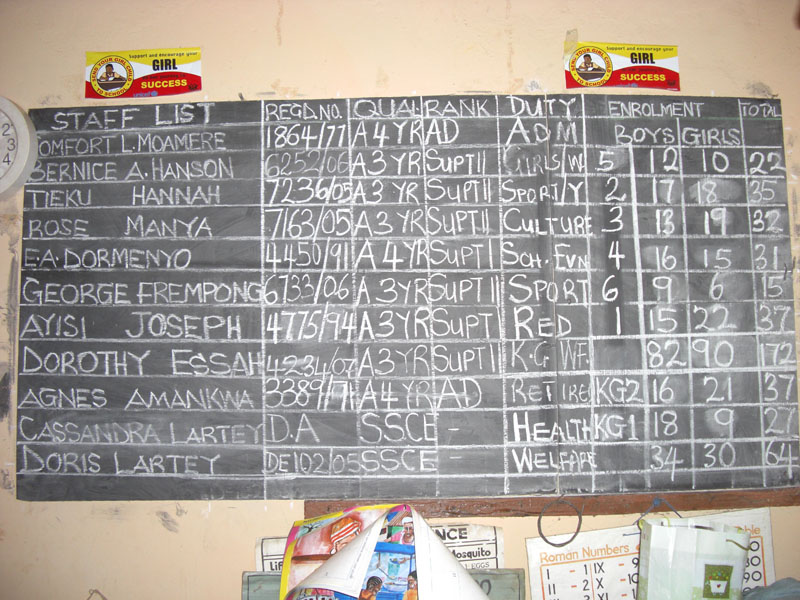 Support and encourage your
GIRL
SUCCESS
SEND YOUR GIRL CHILD
TO SCHOOL
Support and encourage your
GIRL
SUCCESS
SEND YOUR GIRL CHILD
TO SCHOOL
2
3
4
STAFF LIST REGD.NO. QUAL RANK DUTY ENROLMENT TOTAL
BOYS GIRLS
COMFORT L. MOAMERE 1864/77 A 4 YR AD ADM
BERNICE A. HANSON 6252/06 A 3 YR SUPT II GIRLS/W. 5 12 10 22
TIEKU HANNAH 7236/05 A 3 YR SUPT II SPORT/Y 2 17 18 35
ROSE MANYA 7163/05 A 3 YR SUPT II CULTURE 3 13 19 32
E.A. DORMENYO 4450/91 A 4 YR SUPT I SCH. EVN 4 16 15 31
GEORGE FREMPONG 6733/06 A 3 YR SUPT II SPORT 6 9 6 15
AYISI JOSEPH 4775/94 A 3 YR SUPT I RED 1 15 22 37
DOROTHY ESSAH 4234/07 A 3 YR SUPT I K.G WF. 82 90 172
AGNES AMANKWA 3389/71 A 4 YR AD RETIRE KG2 16 21 37
CASSANDRA LARTEY D.A S.S.C.E - HEALTH KG1 18 9 27
DORIS LARTEY DE102/05 SSCE - WELFARE 34 30 64
NCE
Mosquito
EGGS
Roman Numbers
1 - 1 IX - 9
11 - 2 X